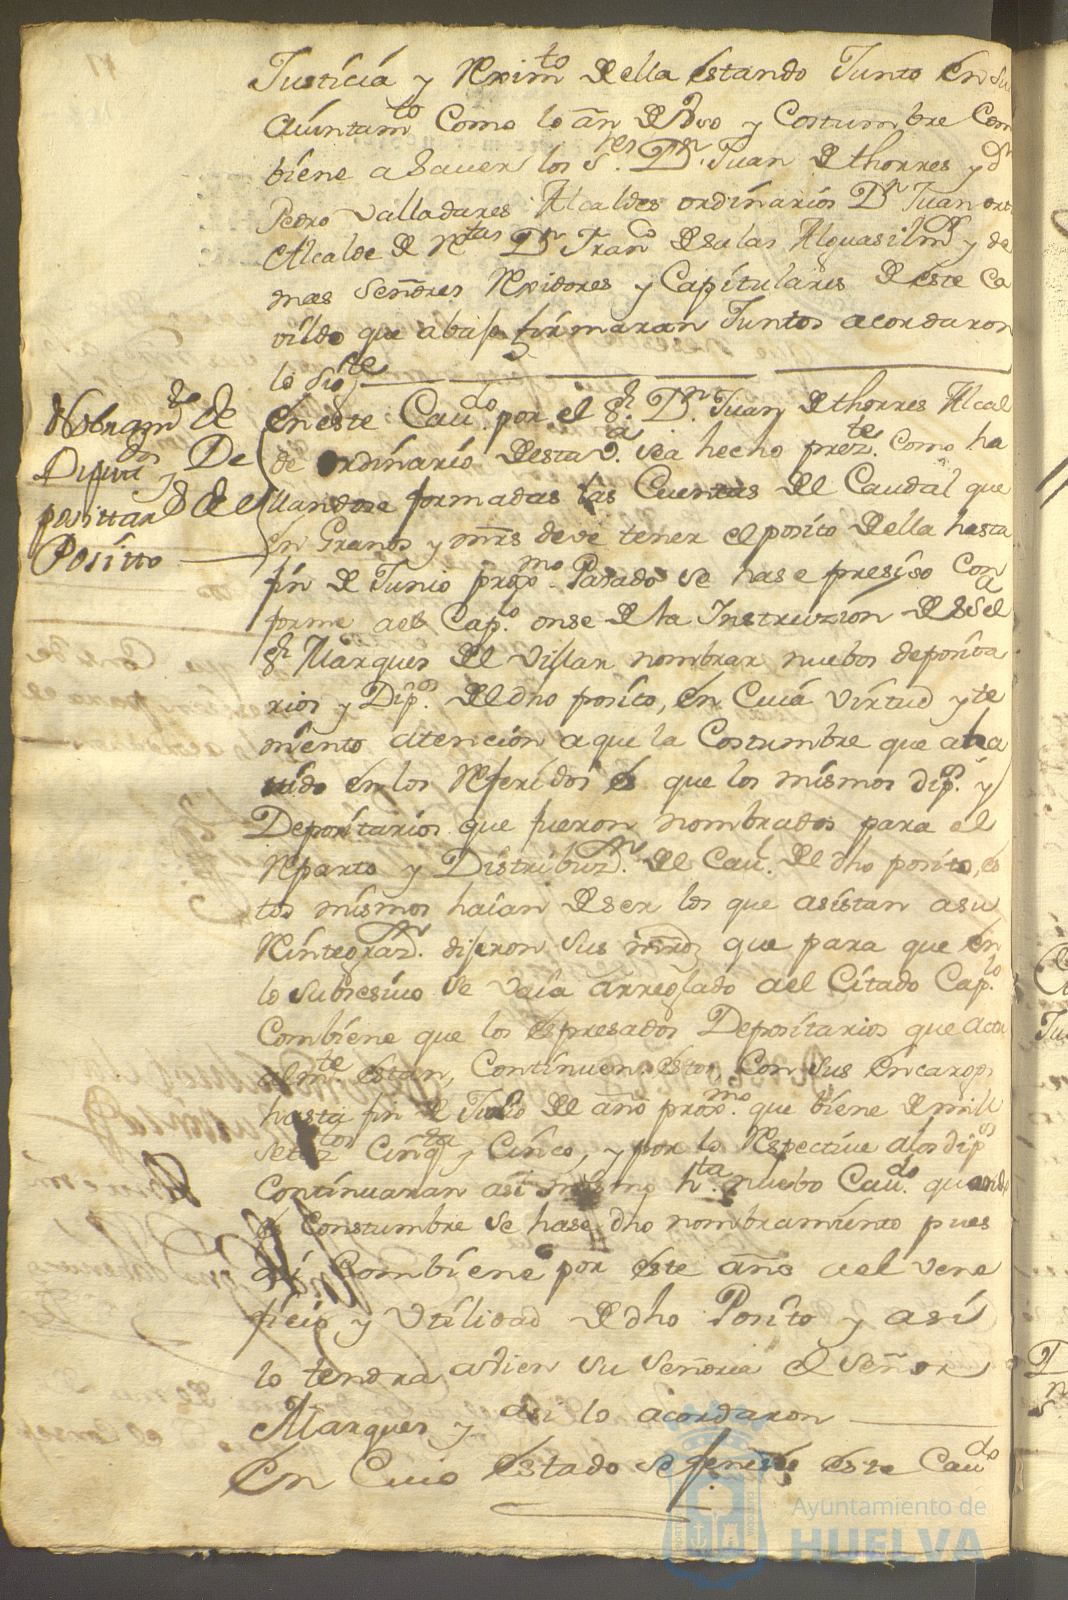 Justicia y Reximto de ella estando Junto en su
Aiuntamto Como lo an de Uso y Costumbre Com
biene a Saver los Sres. Dn. Juan de thorres y dn
Pedro Valladares Alcaldes ordinarios Dn Juan
Alcalde de Rtas Dn Franco de salas Alguasil mr y de
mas Señores Rexidores y Capitulares de este Ca
vildo que abajo firmaran Juntos acordaron
lo sigte
Nobramto de
Diputdos y De
posittarios de el
Positto
en este Caudo. por el Sr. Dn. Juan de thorres Alcal
de ordinario de esta va. se a hecho preste. Como ha
llandose formadas las Cuentas de el Caudal que
en Granos y mrs deve tener el posito de ella hasta
fin de Junio proxmo. Pasado se hase presiso Con
forme a el Capo. onse de la Instruzion de Sa el
Sr Marques de el Villar nombrar nuebos deposita
rios y Dipos. de el dho posito, en Cuia virtud y te
niendo atencion a que la Costumbre que a ha
uido en los Referidos es que los mismos dipos. y
Depositarios que fueron nombrados para el
Reparto y Distribuzn. de el Caul. de el dho posito, es
tos mismos haian de ser los que asistan a su
Reintegrazn. dijeron sus mrds que para que en
lo subsesivo se vaia arreglado a el Citado Caplo.
Combiene que los espresados Depositarios que actu
almte estan, Continuen estos, Con sus encargos
hasta fin de Julio de el año proxmo. que biene de mill
setezos Cinqta y Cinco, y por lo Respective a los dipos
Continuaran asi mismo hta. nuebo Caudo. quando
es Constumbre se hase dho nombramiento pues
asi Combiene por este año a el vene
ficio y Utilidad de dho Posito y asi
lo tendra a bien su Señoria el Señor
Marques y asi lo acordaron
En Cuio estado se fenesio este Caudo
Ayuntamiento de
HUELVA